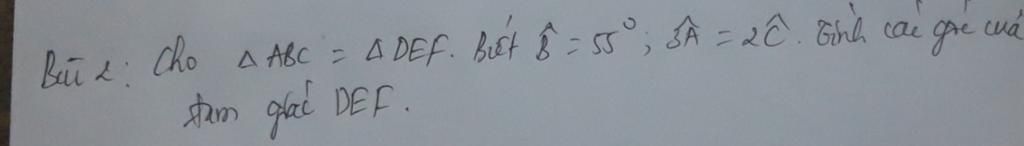 Bài 2: Cho △ABC = △DEF. Biết B̂ = 55°; 3Â = 2Ĉ. Tính các góc của
tam giác DEF.